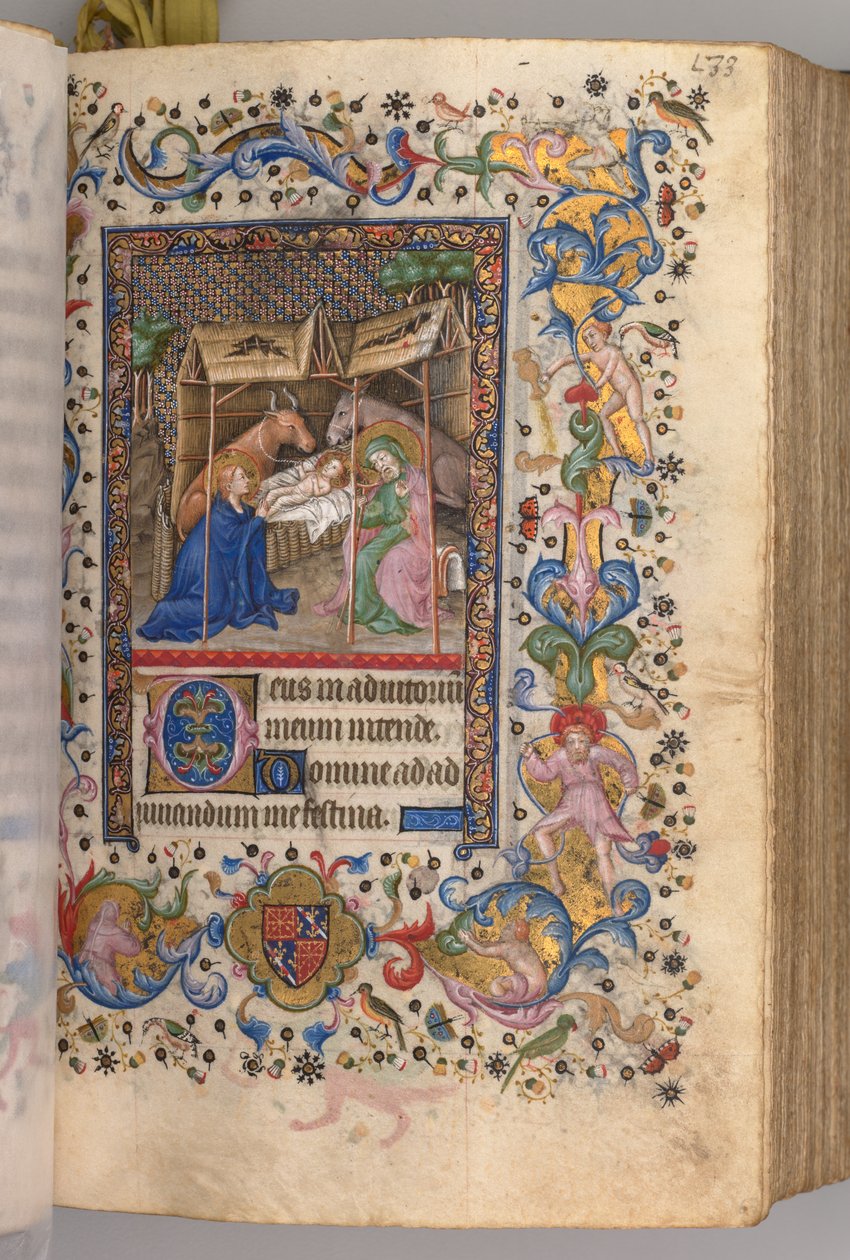 433
Deus in adiutoriu
meum intende.
Domine ad ad
iuuandum me festina.